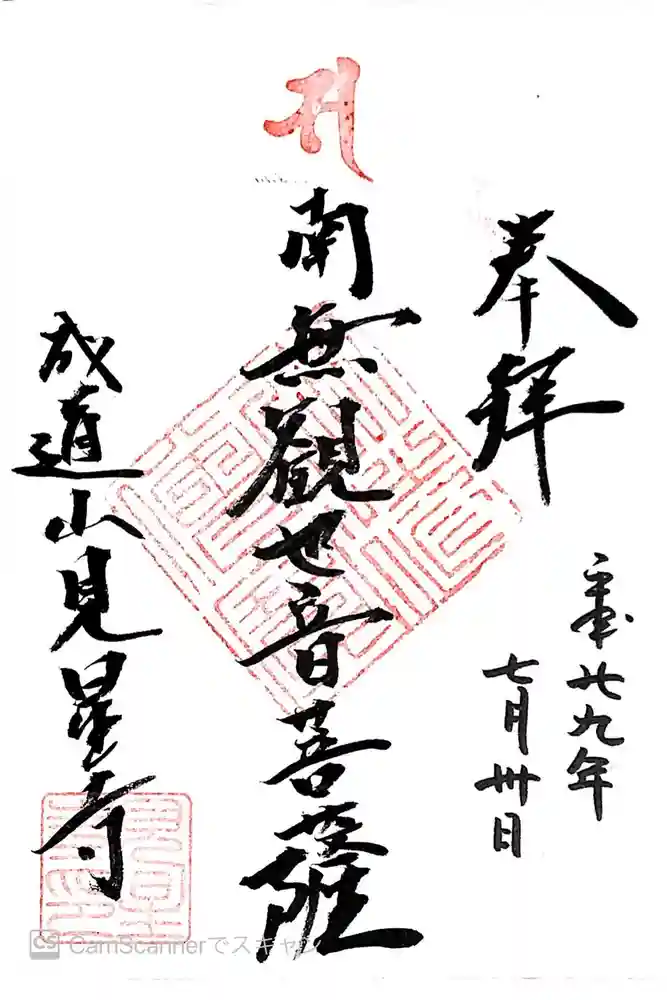 奉拝
平成廿九年
七月卅日
南無観世音菩薩
成道山見星寺
CS CamScannerでスキャン